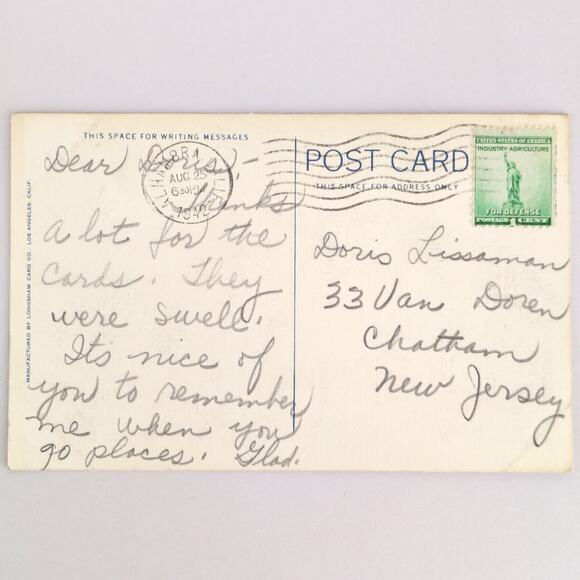 THIS SPACE FOR WRITING MESSAGES
Dear Doris,-
Thanks
a lot for the
cards. They
were swell.
Its nice of
you to remember
me when you
go places. Glad.
MANUFACTURED BY LONGSHAW CARD CO. LOS ANGELES, CALIF.
LA HABRA
AUG 25
630PM
1942
CALIF.
POST CARD
THIS SPACE FOR ADDRESS ONLY
UNITED STATES OF AMERICA
INDUSTRY AGRICULTURE
FOR DEFENSE
POSTAGE 1 CENT
Doris Lissaman
33 Van Doren
Chatham
New Jersey